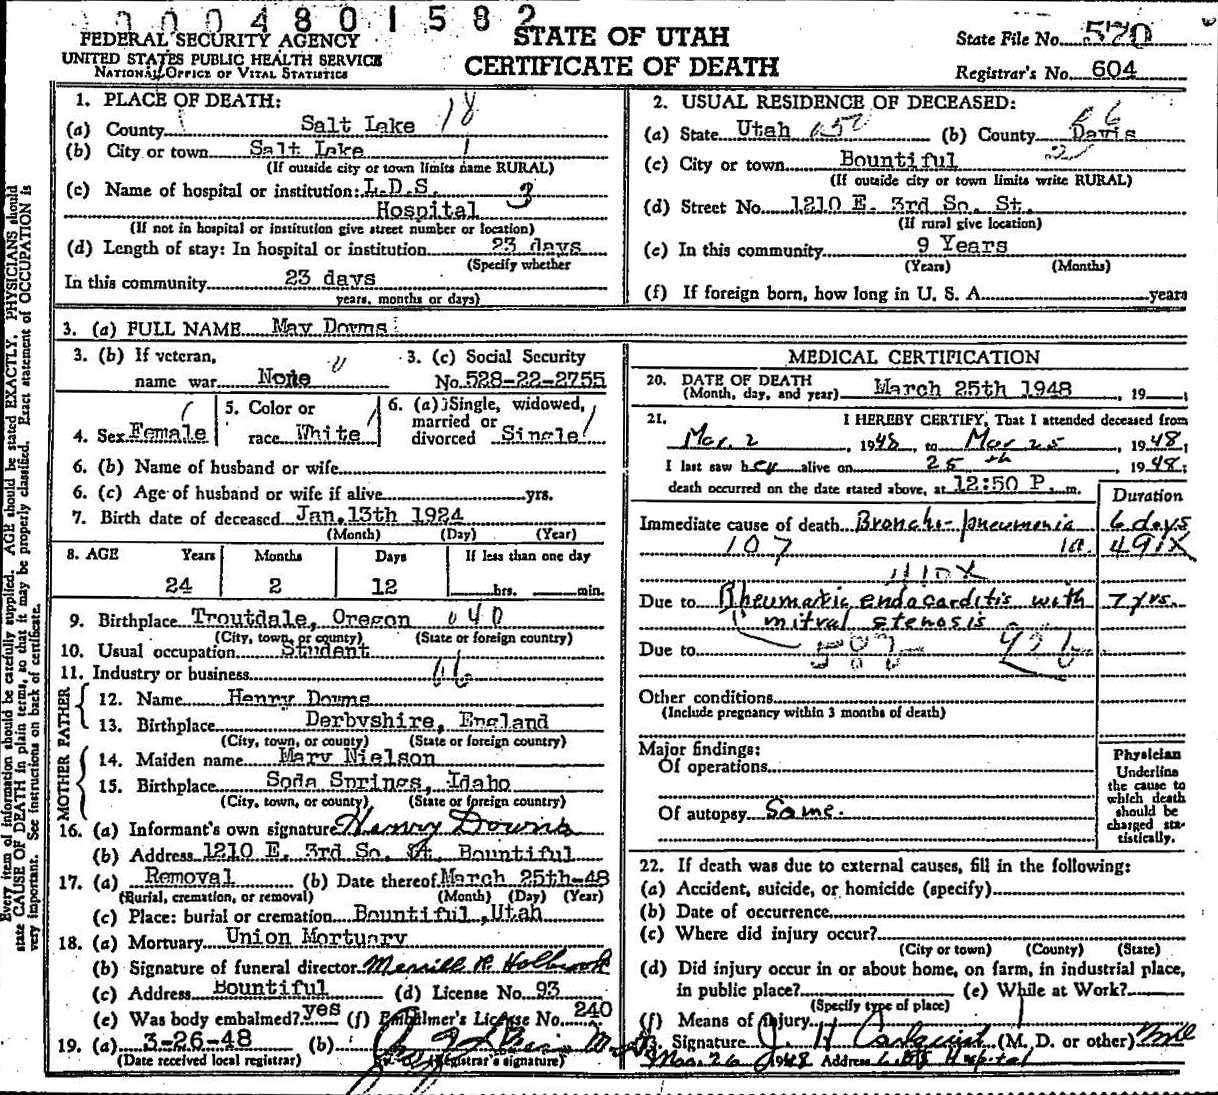 0004801582
FEDERAL SECURITY AGENCY
UNITED STATES PUBLIC HEALTH SERVICE
NATIONAL OFFICE OF VITAL STATISTICS
STATE OF UTAH
CERTIFICATE OF DEATH
State File No. 570
Registrar's No. 604
Every item of information should be carefully supplied. AGE should be stated EXACTLY. PHYSICIANS should
state CAUSE OF DEATH in plain terms, so that it may be properly classified. Exact statement of OCCUPATION is
very important. See instructions on back of certificate.
1. PLACE OF DEATH:
(a) County Salt Lake 18
(b) City or town Salt Lake 1
(If outside city or town limits name RURAL)
(c) Name of hospital or institution: L.D.S. 3
Hospital
(If not in hospital or institution give street number or location)
(d) Length of stay: In hospital or institution 23 days
(Specify whether
In this community 23 days
years, months or days)
2. USUAL RESIDENCE OF DECEASED:
(a) State Utah (b) County Davis
(c) City or town Bountiful
(If outside city or town limits write RURAL)
(d) Street No. 1210 E. 3rd So. St.
(If rural give location)
(e) In this community 9 Years
(Years) (Months)
(f) If foreign born, how long in U. S. A. years
3. (a) FULL NAME May Downs
3. (b) If veteran, name war None
3. (c) Social Security No. 528-22-2755
4. Sex Female
5. Color or race White
6. (a) Single, widowed, married or divorced Single
6. (b) Name of husband or wife
6. (c) Age of husband or wife if alive yrs.
7. Birth date of deceased Jan.13th 1924
(Month) (Day) (Year)
8. AGE Years Months Days If less than one day
24 2 12 hrs. min.
9. Birthplace Troutdale, Oregon 040
(City, town, or county) (State or foreign country)
10. Usual occupation Student
11. Industry or business
FATHER
12. Name Henry Downs
13. Birthplace Derbyshire, England
(City, town, or county) (State or foreign country)
MOTHER
14. Maiden name Mary Nielson
15. Birthplace Soda Springs, Idaho
(City, town, or county) (State or foreign country)
16. (a) Informant's own signature Henry Downs
(b) Address 1210 E. 3rd So. St. Bountiful
17. (a) Removal (b) Date thereof March 25th-48
(Burial, cremation, or removal) (Month) (Day) (Year)
(c) Place: burial or cremation Bountiful, Utah
18. (a) Mortuary Union Mortuary
(b) Signature of funeral director Merrill R Holbrook
(c) Address Bountiful (d) License No. 93
(e) Was body embalmed? yes (f) Embalmer's License No. 240
19. (a) 3-26-48 (b)
(Date received local registrar) (Registrar's signature)
MEDICAL CERTIFICATION
20. DATE OF DEATH (Month, day, and year) March 25th 1948, 19
21. I HEREBY CERTIFY, That I attended deceased from
Mar. 2, 1948, to Mar 25 1948;
I last saw her alive on 25th 1948;
death occurred on the date stated above, at 12:50 P. m.
Duration
Immediate cause of death Broncho-pneumonia 6 days
107 1a 491X
Due to Rheumatic endocarditis with 7 yrs.
mitral stenosis
Due to
Other conditions
(Include pregnancy within 3 months of death)
Major findings:
Of operations
Of autopsy Same.
Physician
Underline
the cause to
which death
should be
charged sta-
tistically.
22. If death was due to external causes, fill in the following:
(a) Accident, suicide, or homicide (specify)
(b) Date of occurrence
(c) Where did injury occur?
(City or town) (County) (State)
(d) Did injury occur in or about home, on farm, in industrial place,
in public place? (e) While at Work?
(Specify type of place)
(f) Means of injury
23. Signature (M. D. or other)
Mar. 26 1948 Address L.D.S. Hospital